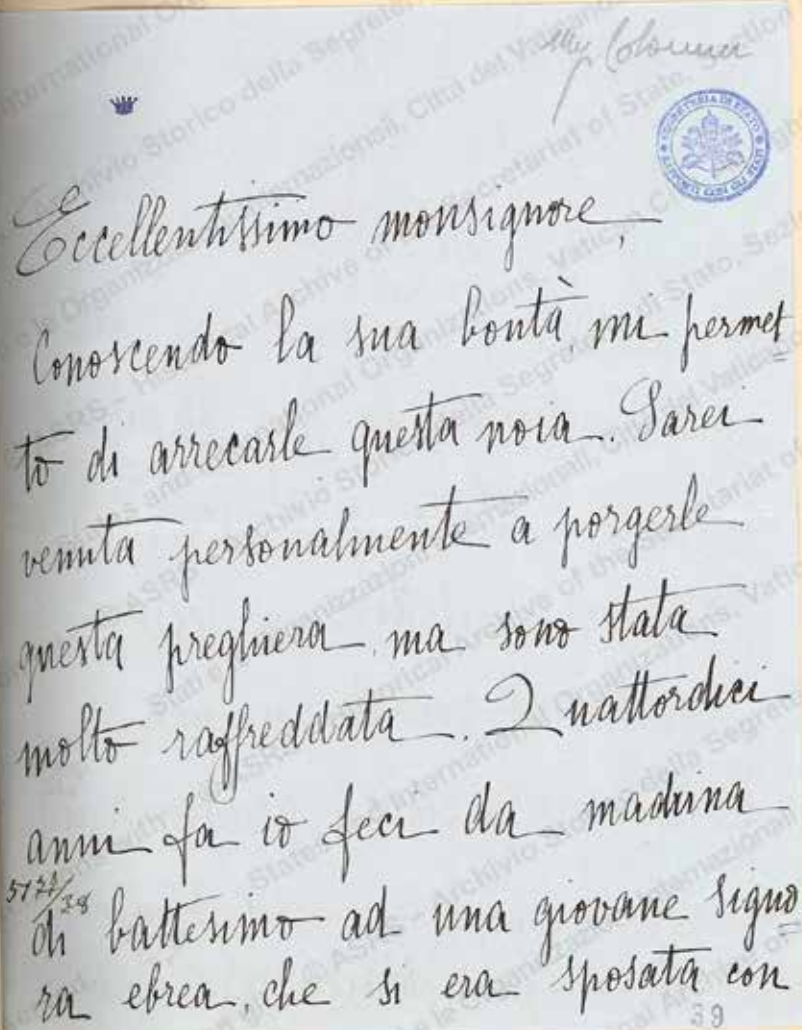 Colonna
SEGRETERIA DI STATO
Eccellentissimo monsignore,
Conoscendo la sua bontà, mi permet=
to di arrecarle questa noia. Sarei
venuta personalmente a porgerle
questa preghiera, ma sono stata
molto raffreddata. Quattordici
anni fa io feci da madrina
di battesimo ad una giovane signo=
ra ebrea, che si era sposata con
39